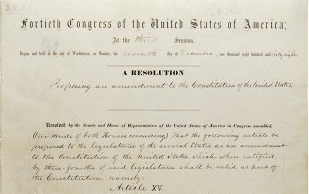 Fortieth Congress of the United States of America;
At the Third Session,
Begun and held at the city of Washington, on Monday, the seventh day of December, one thousand eight hundred and sixty-eight
A RESOLUTION
Proposing an amendment to the Constitution of the United States.
Resolved by the Senate and House of Representatives of the United States of America in Congress assembled,
(two-thirds of both Houses concurring) That the following article be
proposed to the legislatures of the several States as an amendment
to the Constitution of the United States, which when ratified
by three-fourths of said legislatures shall be valid as part of
the Constitution, namely:
Article XV.